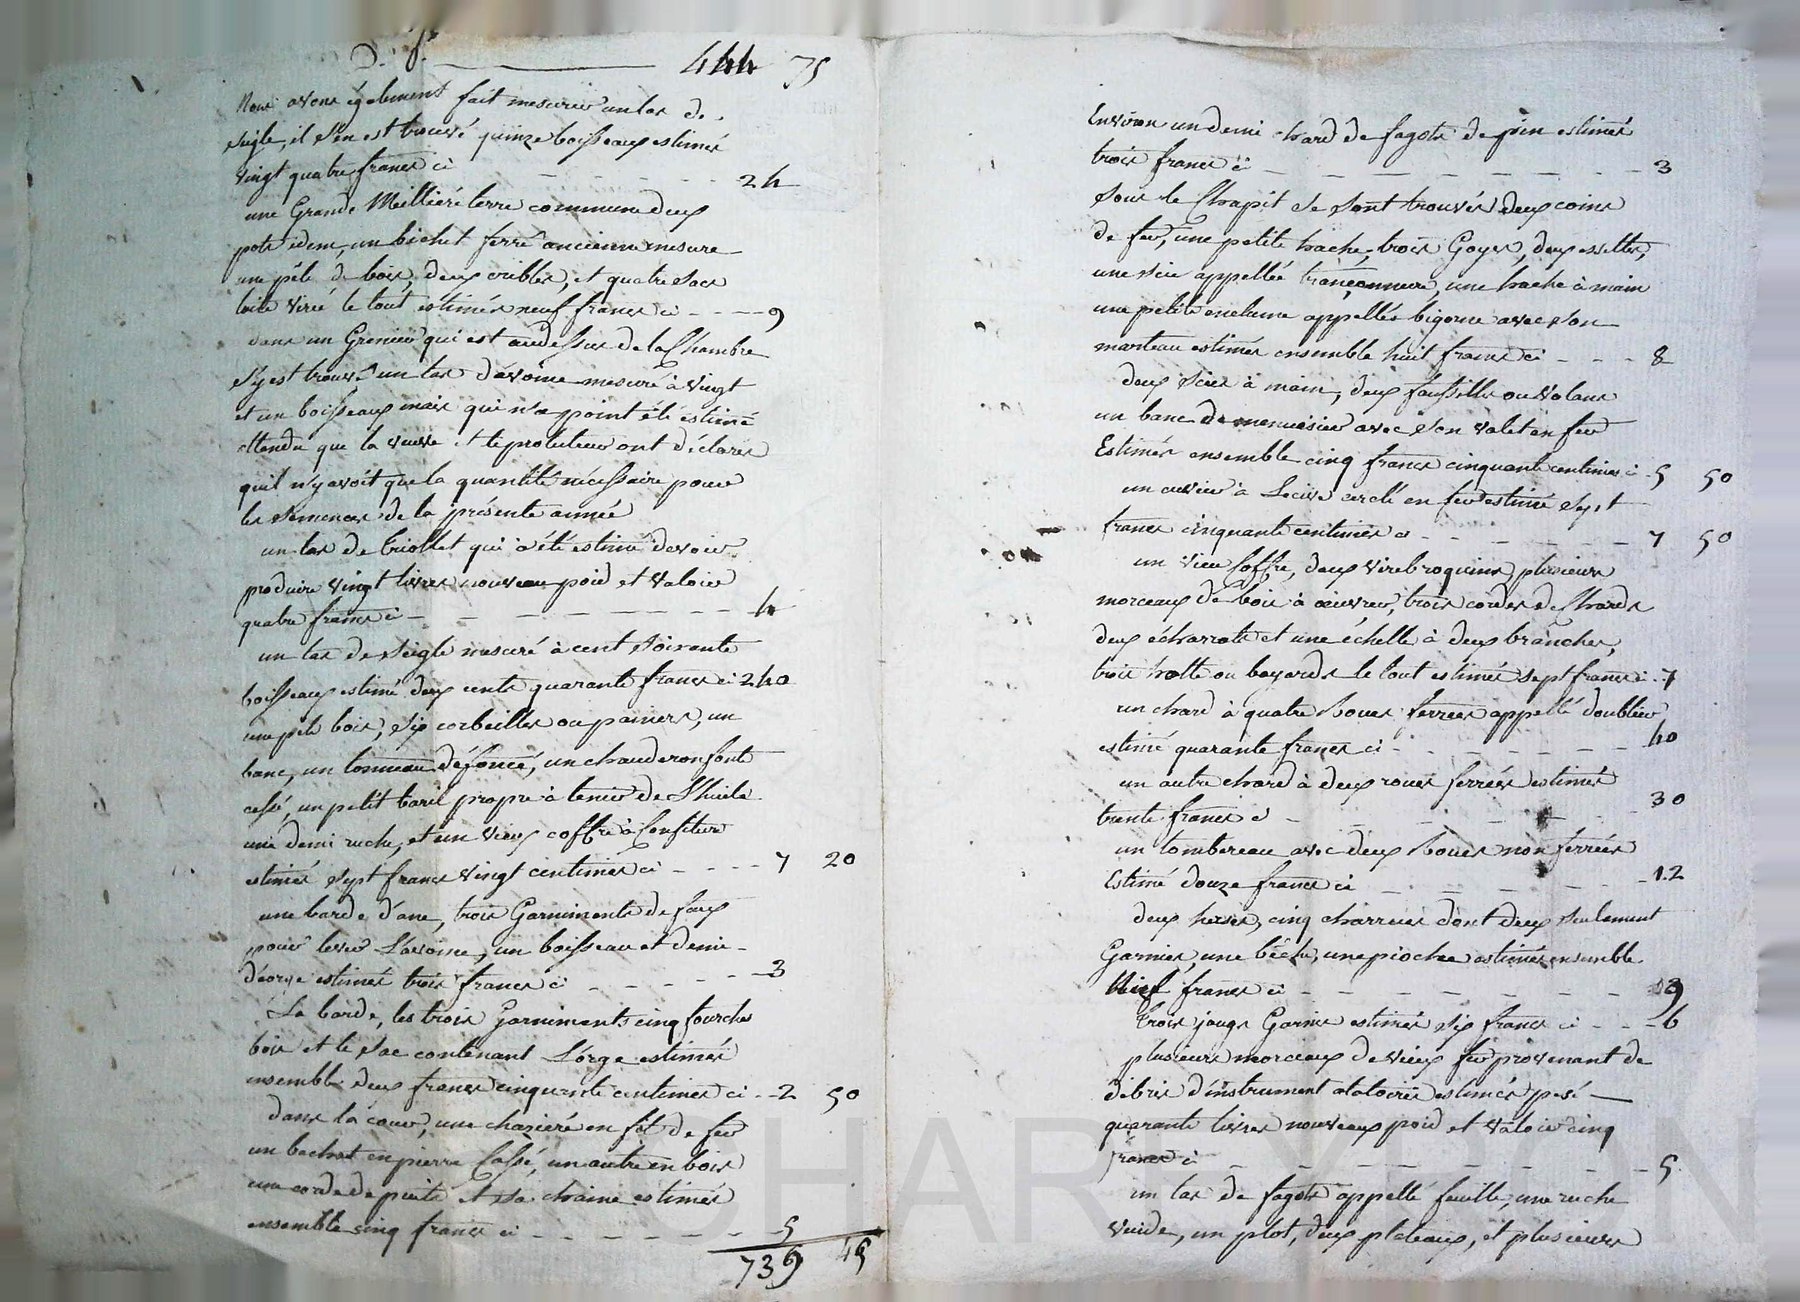 444 75
Nous avons également fait mesurer un tas de
seigle, il s'en est trouvé quinze boisseaux estimé
vingt quatre francs ci - - - - - 24
une Grande Meillière terre commune deux
pots idem, un bichet ferré ancienne mesure
une pele de bois, deux cribles, et quatre sacs
toile virée le tout estimés neuf francs ci - - - - 9
dans un Grenier qui est audessus de la Chambre
s'y est trouvé un tas d'avoine mesuré à vingt
et un boisseaux mais qui n'a point été estimé
attendu que la veuve et le protuteur ont déclarés
quil n'y avoit que la quantité nécessaire pour
les semences de la présente année
un tas de triollet qui a été estimé devoir
produire vingt livres nouveau poid et valoir
quatre francs ci - - - - - - - - 4
un tas de seigle mesuré à cent soixante
boisseaux estimé deux cents quarante francs ci 240
une pele bois, six corbeilles ou paniers, un
banc, un tonneau défoncé, un chauderon fonte
cassé, un petit baril propre à tenir de l'huile
une demi ruche, et un vieux coffre à Confiture
estimés sept francs vingt centimes ci - - - 7 20
une barde d'ane, trois Garniments de faux
pour lever l'avoine, un boisseau et demi
d'éorge estimés trois francs ci - - - - - 3
La barde, les trois Garniments cinq fourches
bois et le sac contenant l'orge estimés
ensemble deux francs cinquante centimes ci - - 2 50
dans la cour, une chasière en fil de fer
un bachat en pierre Cassé, un autre en bois
une corde de puits et sa chaine estimés
ensemble cinq francs ci - - - - - - 5
739 45
Environ un demi chard de fagots de pin estimés
trois francs ci - - - - - - - - - 3
Sous le Chapit se sont trouvés deux coins
de fer, une petite hache, trois Goyes, deux
une scie appellée trançonneuse, une hache à main
une petite enclume appellés bigorne avec son
marteau estimés ensemble huit francs ci - - - 8
deux scies à main, deux faussilles ou volans
un banc de menuisier avec son valet en fer
Estimés ensemble cinq francs cinquante centimes ci 5 50
un cuvier à Lecive cerclé en fer estimé sept
francs cinquante centimes ci - - - - - - 7 50
un vieu Coffre, deux virebroquins, plusieurs
morceaux de bois à oeuvrer, trois cordes de Chards
deux et une échelle à deux branches,
trois hotte ou bayards le tout estimés sept francs ci - 7
un chard à quatre Roues ferrées appellé doublier
estimé quarante francs ci - - - - - - - 40
un autre chard à deux roues ferrées estimés
trente francs ci - - - - - - - - 30
un tombereau avec deux Roues non ferrées
Estimé douze francs ci - - - - - - - 12
deux herses, cinq charrues dont deux seulement
Garnies, une bêche, une pioche estimés ensemble
Neuf francs ci - - - - - - - - 9
trois jougs Garnis estimés six francs ci - - - 6
plusieurs morceaux de vieux fer provenant de
débris d'instrument aratoire estimés pesé
quarante livres nouveaux poid et valoir cinq
francs ci - - - - - - - - - 5
un tas de fagots appellé feuille, une ruche
vuide, un plot, deux plateaux, et plusieurs
CHARLYRON